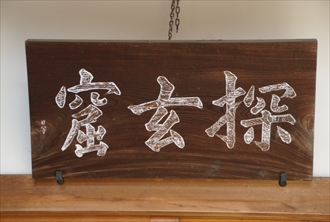 探玄窟